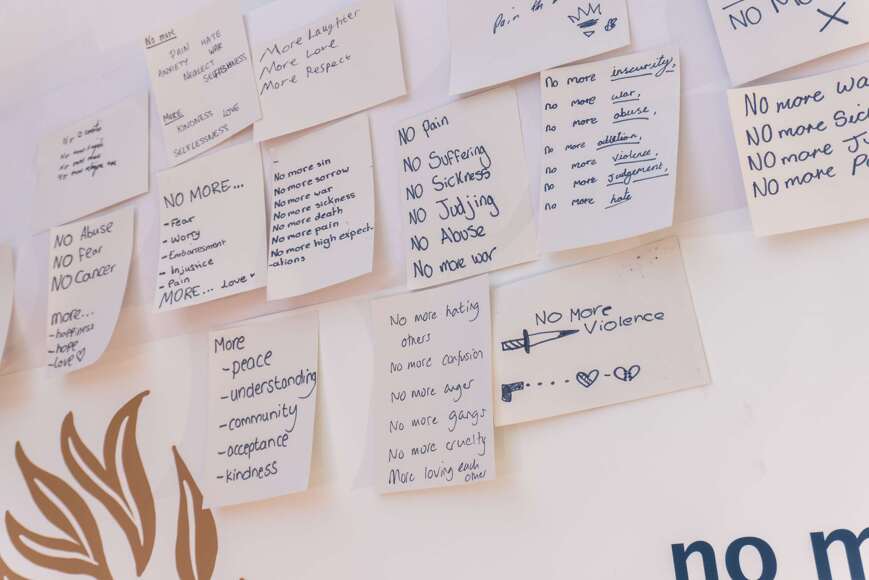 No more
PAIN HATE
ANXIETY WAR
NEGLECT
SELFISHNESS
MORE
KINDNESS LOVE
SELFLESSNESS
More Laughter
More Love
More Respect
Pain
NO MO
X
NO PAIN
NO Suffering
NO Sickness
NO Judjing
NO Abuse
NO more war
no more insecurity,
no more war,
no more abuse,
no more addiction,
no more violence,
no more judgement,
no more hate
NO more Wa
NO more Sic
NO more Ju
NO more Pa
NO Abuse
NO Fear
NO Cancer
more...
-happiness
-hope
-love
NO MORE...
-Fear
-Worry
-Embarresment
-Injustice
-Pain
MORE... Love
-
No more sin
No more sorrow
No more war
No more sickness
No more death
No more pain
No more high expect
-ations
More
-peace
-understanding
-community
-acceptance
-kindness
No more hating
others
No more confusion
No more anger
No more gangs
No more cruelty
More loving each
other
No More
Violence
no m